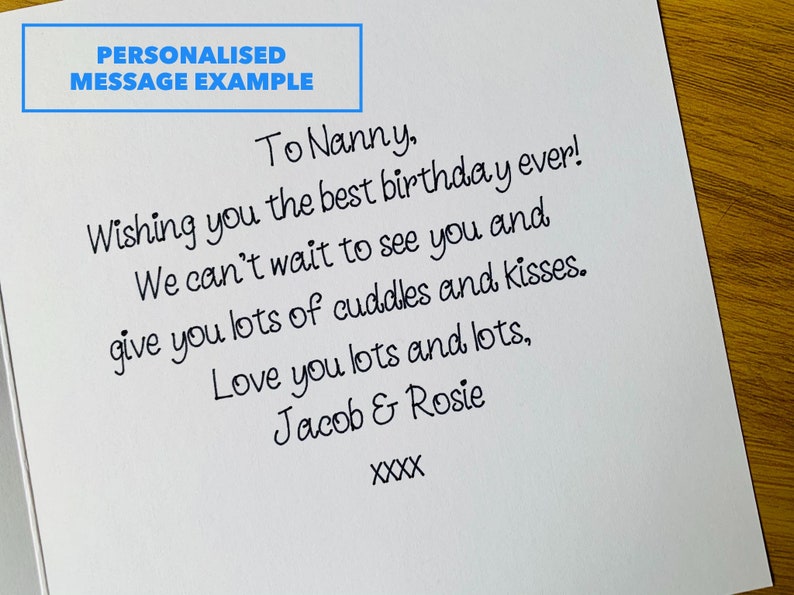 PERSONALISED
MESSAGE EXAMPLE
To Nanny,
Wishing you the best birthday ever!
We can't wait to see you and
give you lots of cuddles and kisses.
Love you lots and lots,
Jacob & Rosie
xxxx